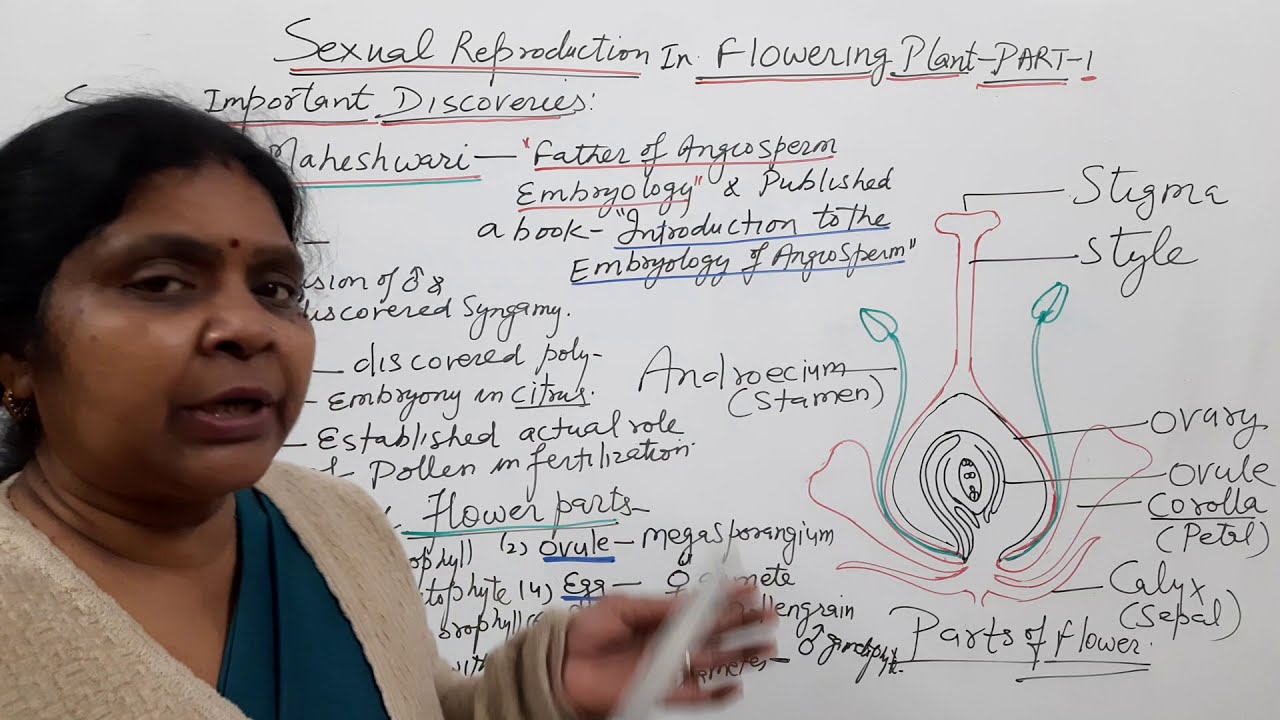 Sexual Reproduction In Flowering Plant-PART-1
Important Discoveries:
Maheshwari — "Father of Angiosperm
Embryology" & Published
a book- "Introduction to the
Embryology of Angiosperm"
of ♂ &
discovered Syngamy.
— discovered poly-
- Embryony in citrus.
- Established actual role
Pollen in fertilization
Flower parts-
(2) Ovule - megasporangium
(4) Egg - ♀
♂
Stigma
Style
Androecium
(Stamen)
Ovary
Ovule
Corolla
(Petal)
Calyx
(Sepal)
Parts of Flower.